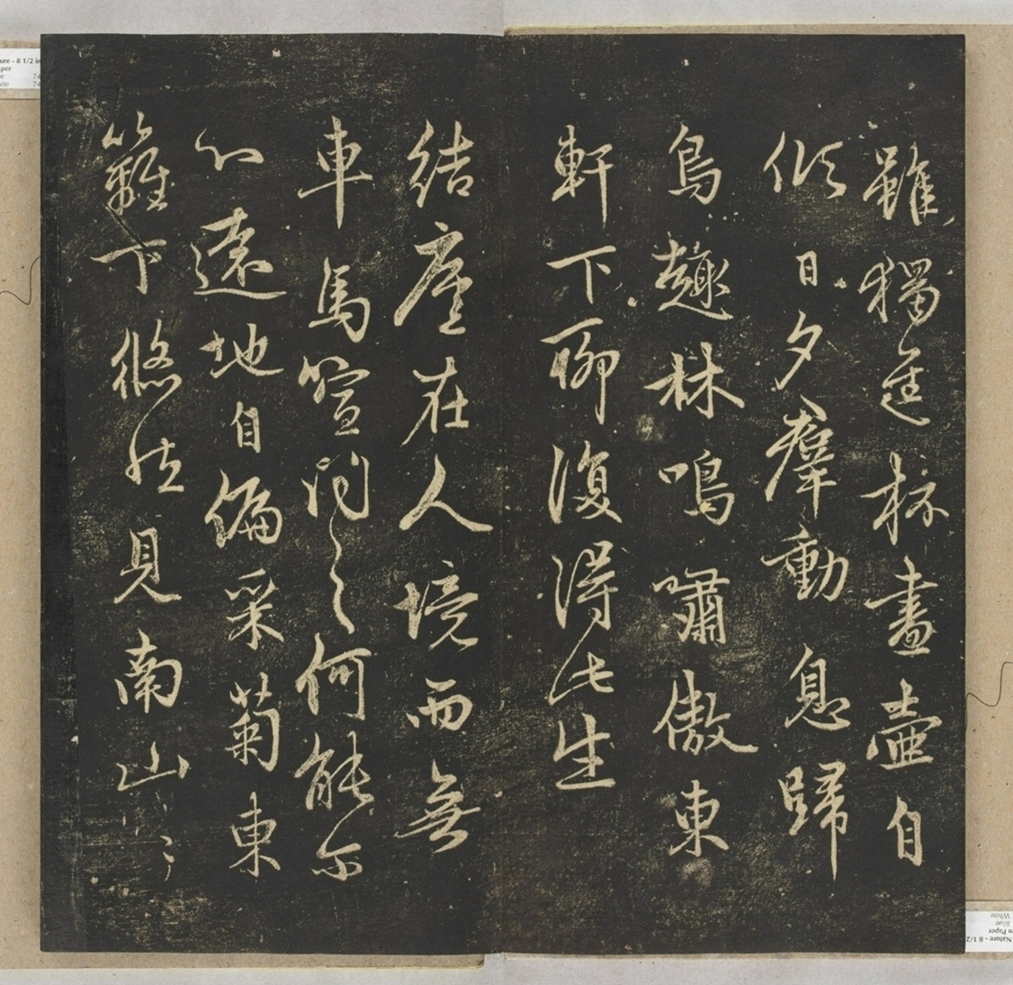 雖獨進杯盡壺自
傾日夕羣動息歸
鳥趨林鳴嘯傲東
軒下聊復得此生
結廬在人境而無
車馬喧問之何能尔
心遠地自偏采菊東
籬下悠然見南山〻